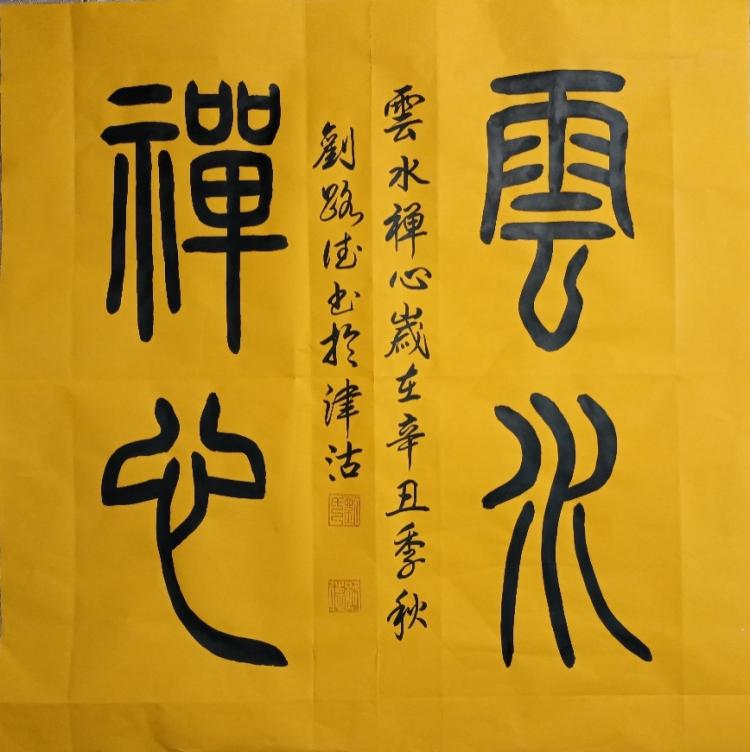 雲水
禪心
雲水禪心歲在辛丑季秋
劉路德書於津沽